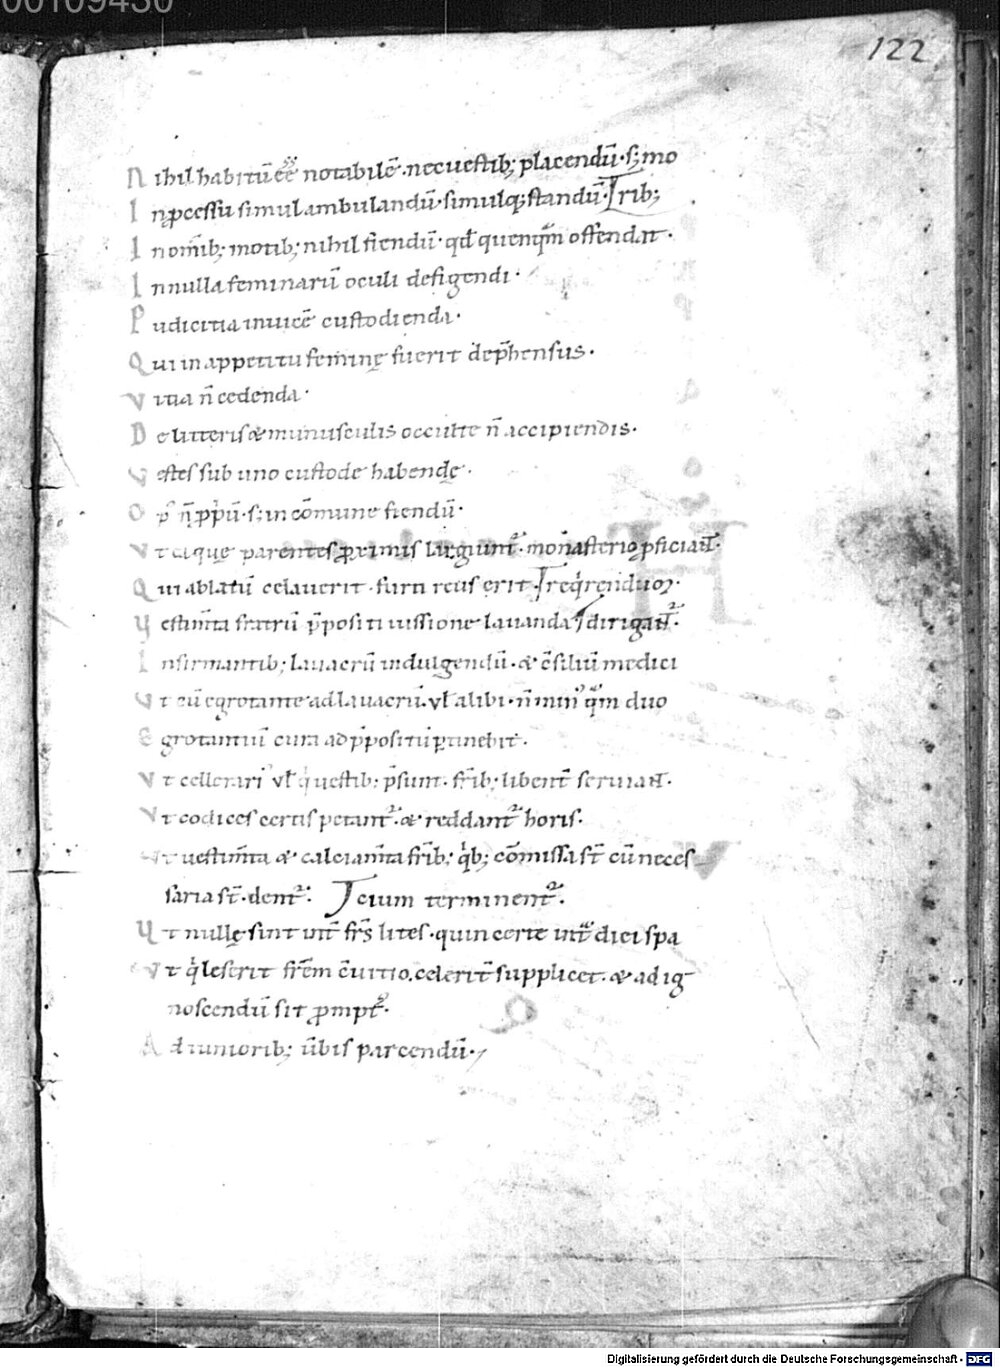 00109430
122
Nihil habitū eē notabilē. nec uestib; placendū. s; mo
In pcessu simul ambulandū. simulq; standū. ſrib;
In omīb; motib; nihil fiendū. qd quenqm̄ offendat.
In nulla feminarū oculi defigendi.
Pudicitia inuicē custodienda.
Qui in appetitu feminę fuerit dep̄hensus.
Vitia n̄ cedenda.
De litteris & munusculis occulte n̄ accipiendis.
Vestes sub uno custode habendę.
Op̄ n̄ pp̄ū. s; in cōmune fiendū.
Vt quę parentes proximis largiunt̄. monasterio pficiant̄.
Qui ablatū celauerit. furti reus erit.
Vestim̄ta fratrū p̄positi iussione lauanda dirigant̄.
Infirmantib; lauacrū indulgendū. & c̄siliū medici
Vt cū egrotante ad lauacrū. vl alibi. n̄ min' qm̄ duo
Egrotantiū cura ad p̄positū ptinebit.
Vt cellerari' vl q uestib; p̄sunt. fr̄ib; libent̄ seruiant.
Vt codices certis petant̄. & reddant̄ horis.
Vt uestim̄ta & calciam̄ta fr̄ib; qb; cōmissa st̄ cū neces
saria st̄. dent̄. cium terminent̄.
Vt nullę sint int̄ fr̄s lites. quin certe int̄ diei spa
Vt q leserit fr̄em c̄uitio. celerit̄ supplicet. & ad ig
noscendū sit prompt'.
Ad iuniorib; ūbis parcendū.
Digitalisierung gefördert durch die Deutsche Forschungsgemeinschaft - DFG